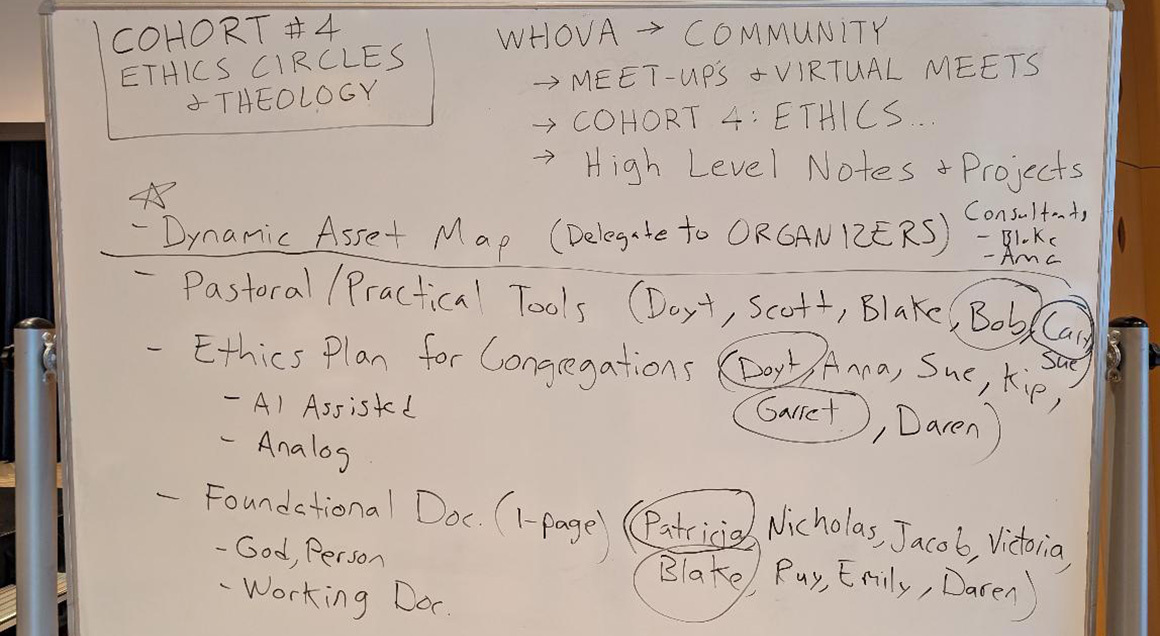 COHORT #4
ETHICS CIRCLES
& THEOLOGY
WHOVA → COMMUNITY
→ MEET-UP'S & VIRTUAL MEETS
→ COHORT 4: ETHICS...
→ High Level Notes & Projects
- Dynamic Asset Map (Delegate to ORGANIZERS)
Consultants
- Blake
- Anna
- Pastoral/Practical Tools (Doyt, Scott, Blake, Bob,
Sue)
- Ethics Plan for Congregations (Doyt, Anna, Sue, Kip,
Garret, Daren)
- AI Assisted
- Analog
- Foundational Doc. (1-page) (Patricia, Nicholas, Jacob, Victoria,
Blake, Ruy, Emily, Daren)
- God, Person
- Working Doc.